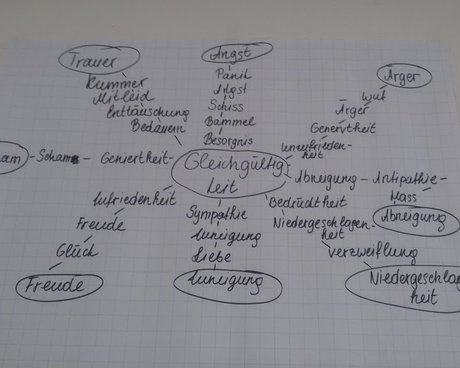 Trauer
Kummer
Mitleid
Enttäuschung
Bedauern
Angst
Panik
Angst
Schiss
Bammel
Besorgnis
Ärger
Wut
Ärger
Genervtheit
Unzufrieden-
heit
am - Scham - Geniertheit -
Gleichgültig
keit
Abneigung - Antipathie -
Hass
Abneigung
Bedrücktheit
Niedergeschlagen-
heit
Verzweiflung
Niedergeschlag
heit
Sympathie
Zuneigung
Liebe
Zuneigung
Zufriedenheit
Freude
Glück
Freude